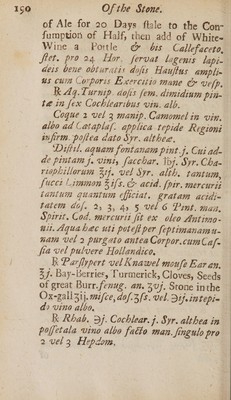 150 Of the Stone.
of Ale for 20 Days stale to the Con-
sumption of Half, then add of White-
Wine a Pottle & bis Callefaceto.
stet. pro 24 Hor. servat lagenis lapi-
deis bene obturatis dosis Haustus ampli-
us cum Corporis Exercitio mane & vesp.
℞ Aq. Turnip dosis sem. dimidium pin-
tæ in sex Cochlearibus vin. alb.
Coque 2 vel 3 manip. Camomel in vin.
albo ad Cataplas. applica tepide Regioni
infirm. postea dato Syr. altheæ.
Distil. aquam fontanam pint. j. Cui ad-
de pintam j. vini, sacchar. lbj. Syr. Cha-
riophillorum ℥ij. vel Syr. alth. tantum,
succi Limmon ℥iss. & acid. spir. mercurii
tantum quantum efficiat. gratam acidi-
tatem dos. 2, 3, 4, 5 vel 6 Pint. man.
Spirit. Cod. mercurii sit ex oleo Antimo-
nii. Aqua hæc uti potest per septimanam u-
nam vel 2 purgato antea Corpor. cum Cas-
sia vel pulvere Hollandico.
℞ Parstpert vel Knawel mouse Ear an.
℥j. Bay-Berries, Turmerick, Cloves, Seeds
of great Burr. fenug. an. ʒvj. Stone in the
Ox-gall ʒij. misce, dos. ʒss. vel. ℈ij. in tepi-
do vino albo.
℞ Rhab. ℈j. Cochlear. j. Syr. althea in
possetala vino albo facto man. singulo pro
2 vel 3 Hepdom.